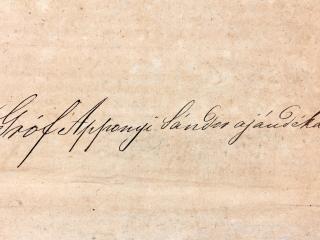 Gróf Apponyi Sándor ajándéka